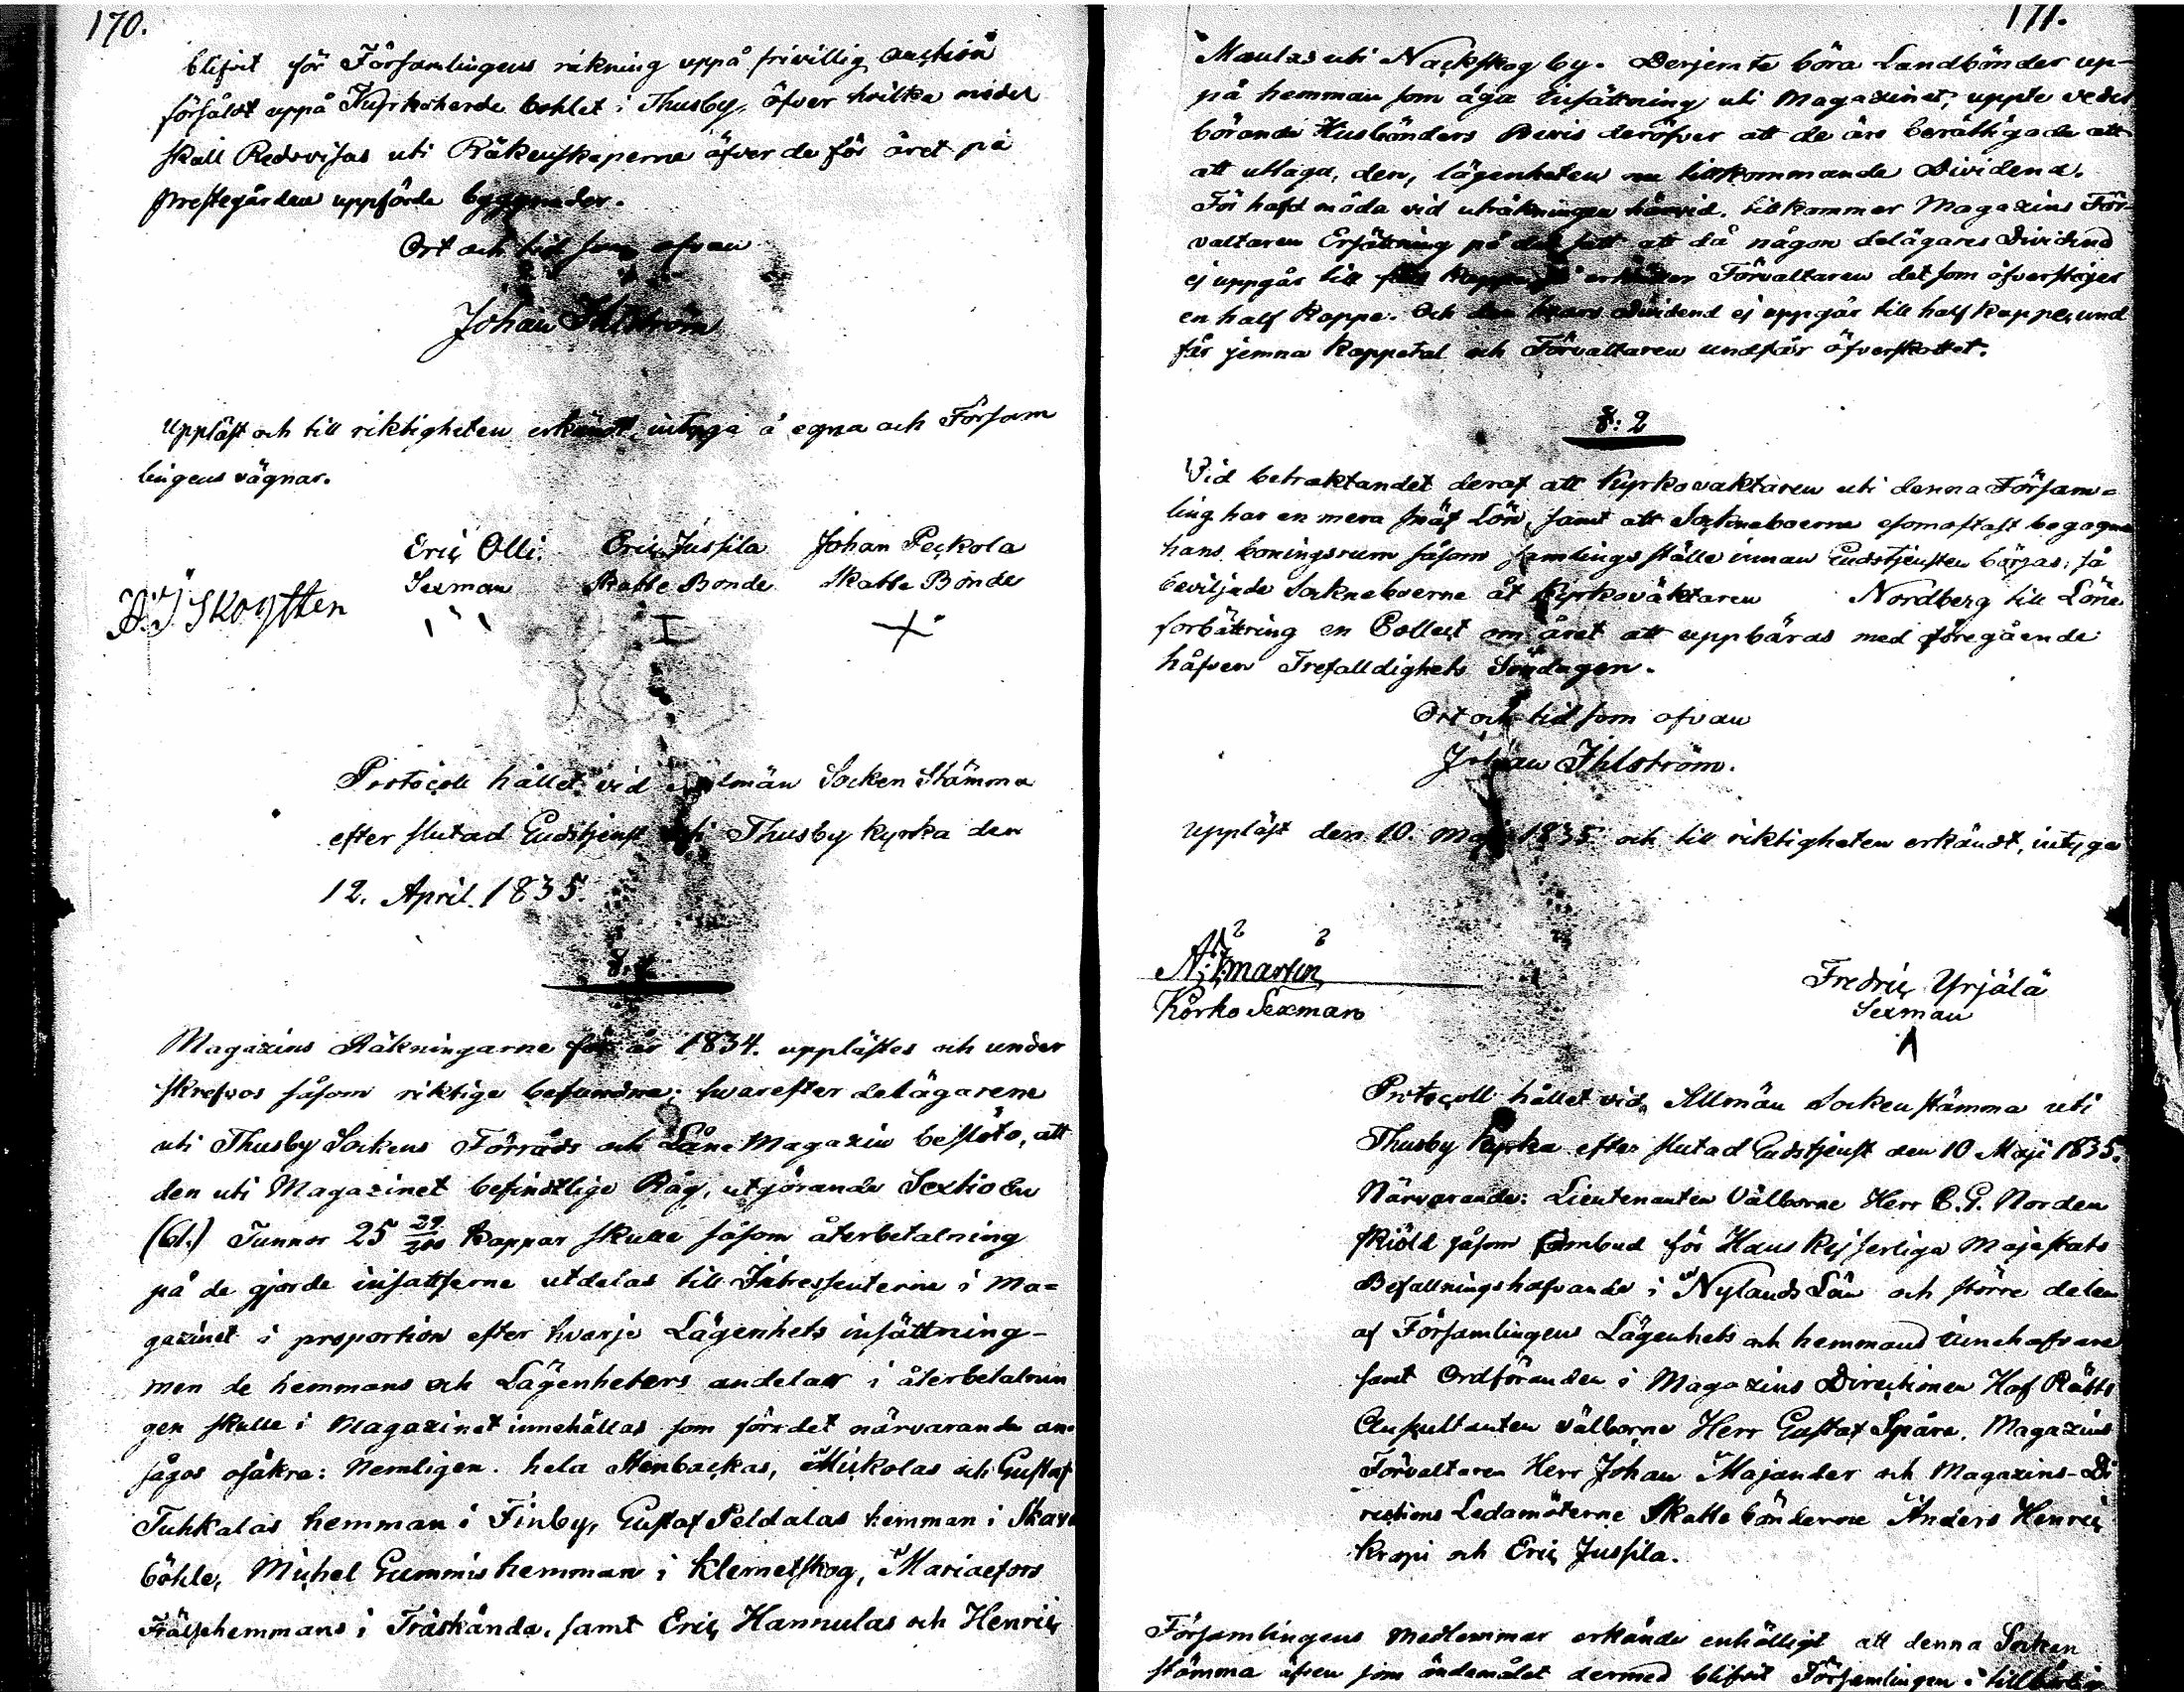 170.
blifvit för Församlingens räkning uppå frivillig auction
försåldt uppå Kyrkoherde bohlet i Thusby, öfver hvilka medel
skall Redovisas uti Räkenskaperne öfver de för året på
prestegården uppförde byggnader.
Ort och tid som ofvan
Johan Ihlström
Uppläst och till riktigheten erkändt, intyga å egna och Församlingens vägnar.
Eric Olli. Eric Jussila Johan Peckola
Sexman Skatte Bonde Skatte Bonde
Skogsten
Protocoll hållet vid Allmän Socken Stämma
efter slutad Gudstjenst uti Thusby kyrka den
12. April. 1835.
§. 1
Magazins Räkningarne för år 1834. upplästes och under
skrefvos såsom riktige befundne; hvarefter delägarene
uti Thusby Sockens Förråds och Låne Magazin beslöto, att
den uti Magazinet befindtlige Råg, utgörande Sextio en
(61.) Tunnor 25 29/200 kappar skulle såsom återbetalning
på de gjorde insattserne utdelas till Intressenterne i Ma=
gazinet i proportion efter hvarje Lägenhets insättning-
men de hemmans och Lägenheters andelar i återbetalnin
gen skulle i Magazinet innehållas som för det närvarande an-
sågos osäkra: Nemligen. hela Stenbackas, Mickolas och Gustaf
Tuhkalas hemman i Finby, Gustaf Peldalas hemman i Skava
böhle, Michel Gummis hemman i Klemetskog, Mariaefors
Frälsehemmans i Träskända, samt Eric Hannulas och Henric
171.
Maulas uti Nackskog by. Derjemte böra Landbönder up-
på hemman som äga Insättning uti Magazinet, uppte veder
börande Husbönders Bevis deröfver att de äro berättigade att
att uttaga, den, lägenheten nu tillkommande Dividend.
För hafd möda vid uträkningen härvid, tillkommer Magazins För-
valtaren Ersättning på det sätt att då någon delägares Dividend
ej uppgår till full kappe, så erhåller Förvaltaren det som öfverstiger
en half kappe. Och den hvars Dividend ej uppgår till half kappe, und
får jemna kappetal och Förvaltaren undfår öfverskottet.
§: 2
Vid betraktandet deraf att Kyrkovaktaren uti denna Försam=
ling har en mera snäf Lön, samt att Sockneboerne esomoftast begagna
hans boningsrum såsom samlings ställe innan Gudstjensten börjas; så
beviljade Socknboerne åt Kyrkoväktaren Nordberg till Löne
forbättring en Collect om året att uppbäras med föregående
håfven Trefalldighets Söndagen.
Ort och tid som ofvan
Johan Ihlström.
Uppläst den 10. Maj 1835 och till riktigheten erkändt, intyga
Martin
Körko Sexman
Fredric Yrjälä
Sexman
Protocoll hållet vid Allmän Sockenstämma uti
Thusby Kyrka efter slutad Gudstjenst den 10 Maji 1835.
Närvarande: Lieutenanten Välborne Herr C. G. Norden
skiöld såsom ombud för Hans Kejserliga Majestäts
Befallningshafvande i Nylands Län och större delen
af Församlingens Lägenhets och hemmans innehafvare
samt Ordföranden i Magazins Directionen Hof Rätts
Auscultanten välborne Herr Gustaf Spåre, Magazins
Förvaltaren Herr Johan Majander och Magazins-Di
rections Ledamöterne Skattebönderne Anders Henric
Krapi och Eric Jussila.
Församlingens medlemmar erkände enhälligt att denna Socken
stämma äfven som ändamålet dermed blifvit Församlingen i tillbörlig